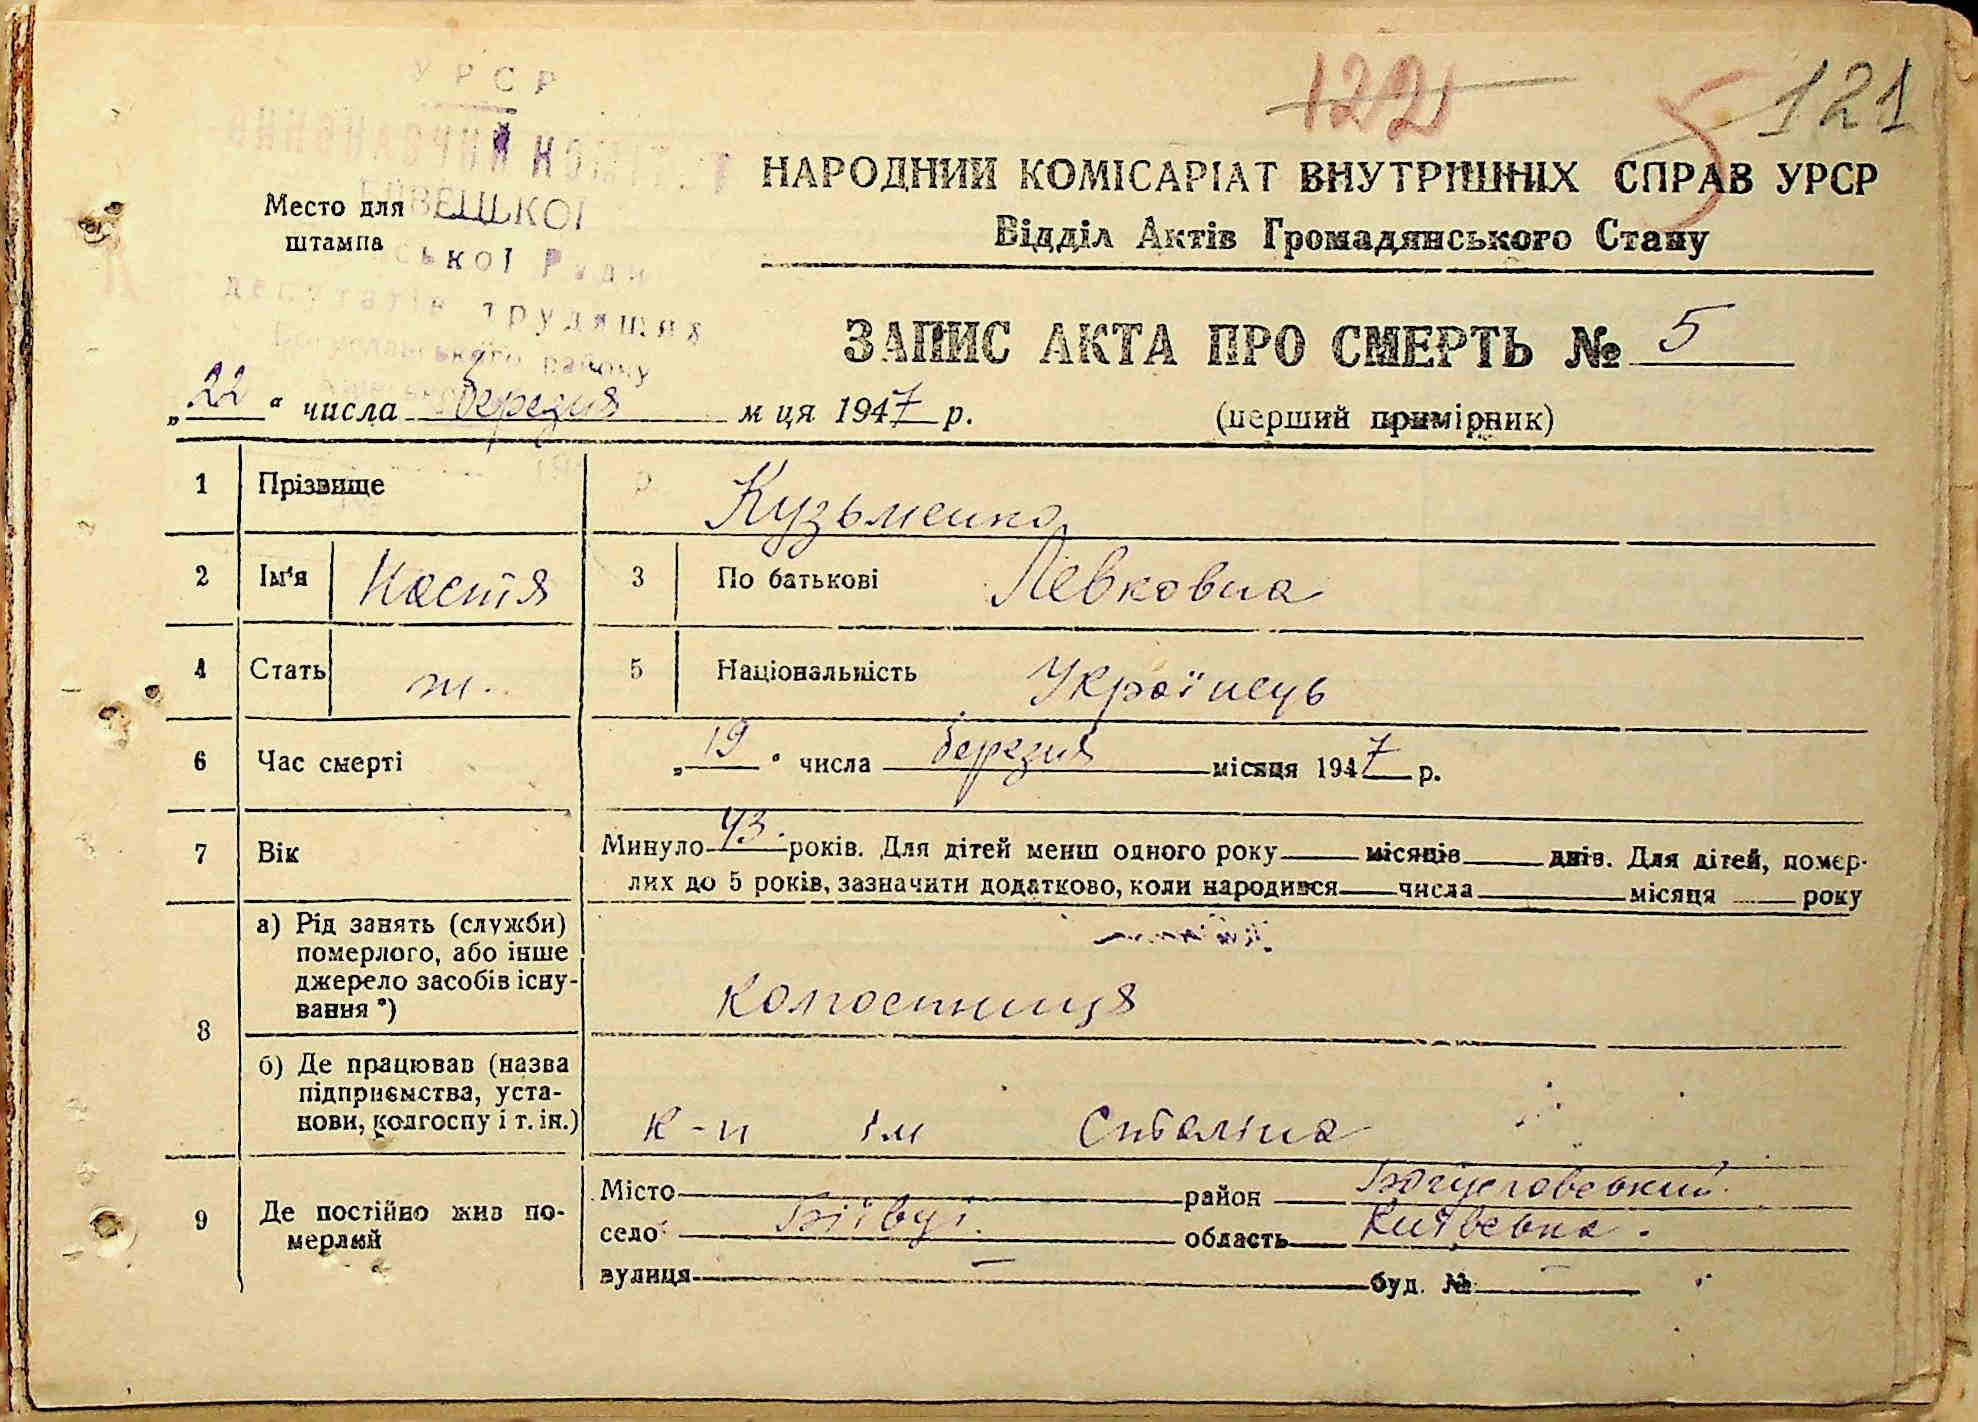 УРСР
122 5 121
ВИКОНАВЧИЙ КОМІТЕТ
НАРОДНИЙ КОМІСАРІАТ ВНУТРІШНІХ СПРАВ УРСР
Место для штампа
БІЇВЕЦЬКОЇ
Відділ Актів Громадянського Стану
сільської Ради
депутатів трудящих
Богуславського району
ЗАПИС АКТА ПРО СМЕРТЬ № 5
„22“ числа березня м ця 1947 р.
(перший примірник)
1 Прізвище Кузьменко
2 Ім'я Настя 3 По батькові Левковна
4 Стать ж. 5 Національність Українець
6 Час смерті „19“ числа березня місяця 1947 р.
7 Вік Минуло 43 років. Для дітей менш одного року місяців днів. Для дітей, помер-
лих до 5 років, зазначити додатково, коли народився числа місяця року
8 а) Рід занять (служби)
померлого, або інше
джерело засобів існу-
вання *)
колгоспниця
б) Де працював (назва
підприємства, уста-
нови, колгоспу і т. ін.)
к-п ім Сталіна
9 Де постійно жив по-
мерлий
Місто район Богуславський
село Біївці. область Київська.
вулиця — буд. № —